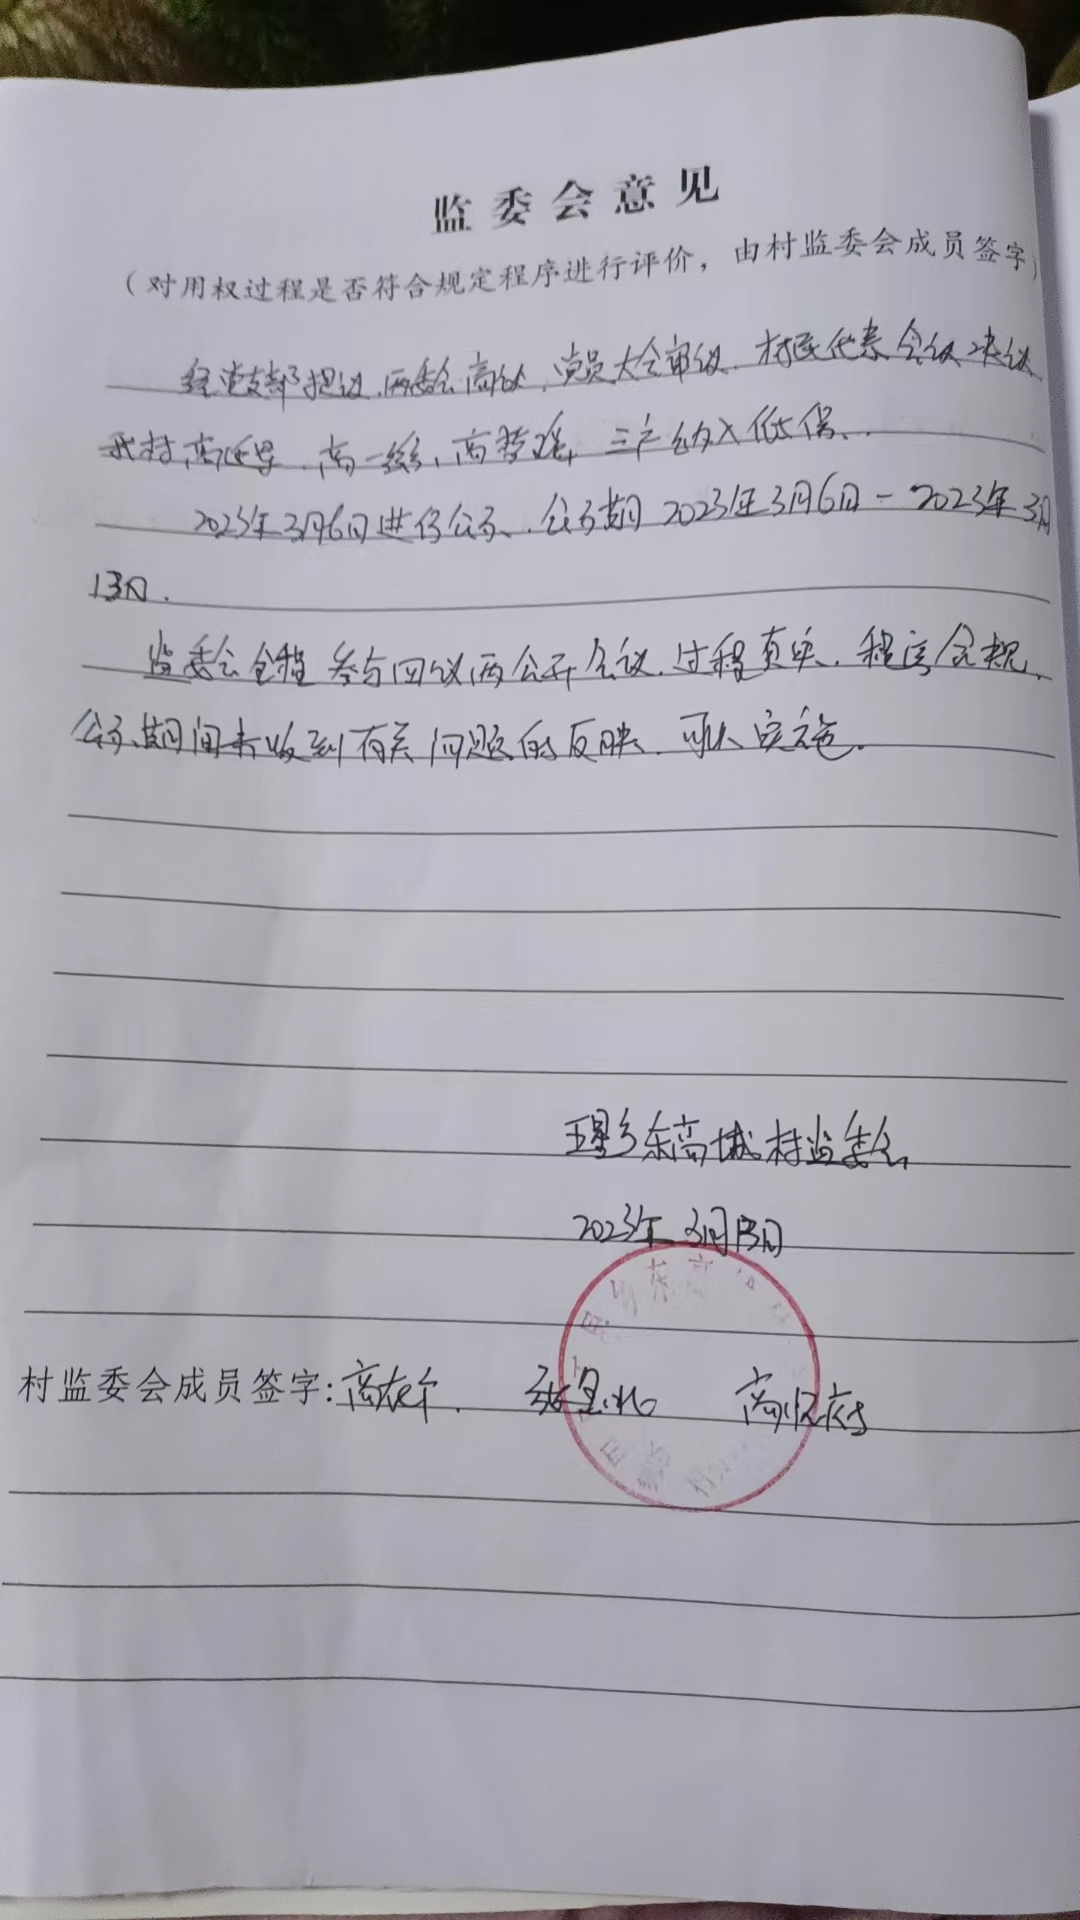 监委会意见
（对用权过程是否符合规定程序进行评价，由村监委会成员签字）
经党支部提议、两委会商议、党员大会审议、村民代表会议决议
我村高 、高一 、高梦瑶、三户纳入低保、.
2023年3月6日进行公示、公示期2023年3月6日－2023年3月
13日.
监委会全程参与四议两公开会议、过程真实、程序合规、
公示期间未收到有关问题的反映、可以实施。
王里乡东高城村监委会
2023年3月13日
东高
村监委会成员签字:高